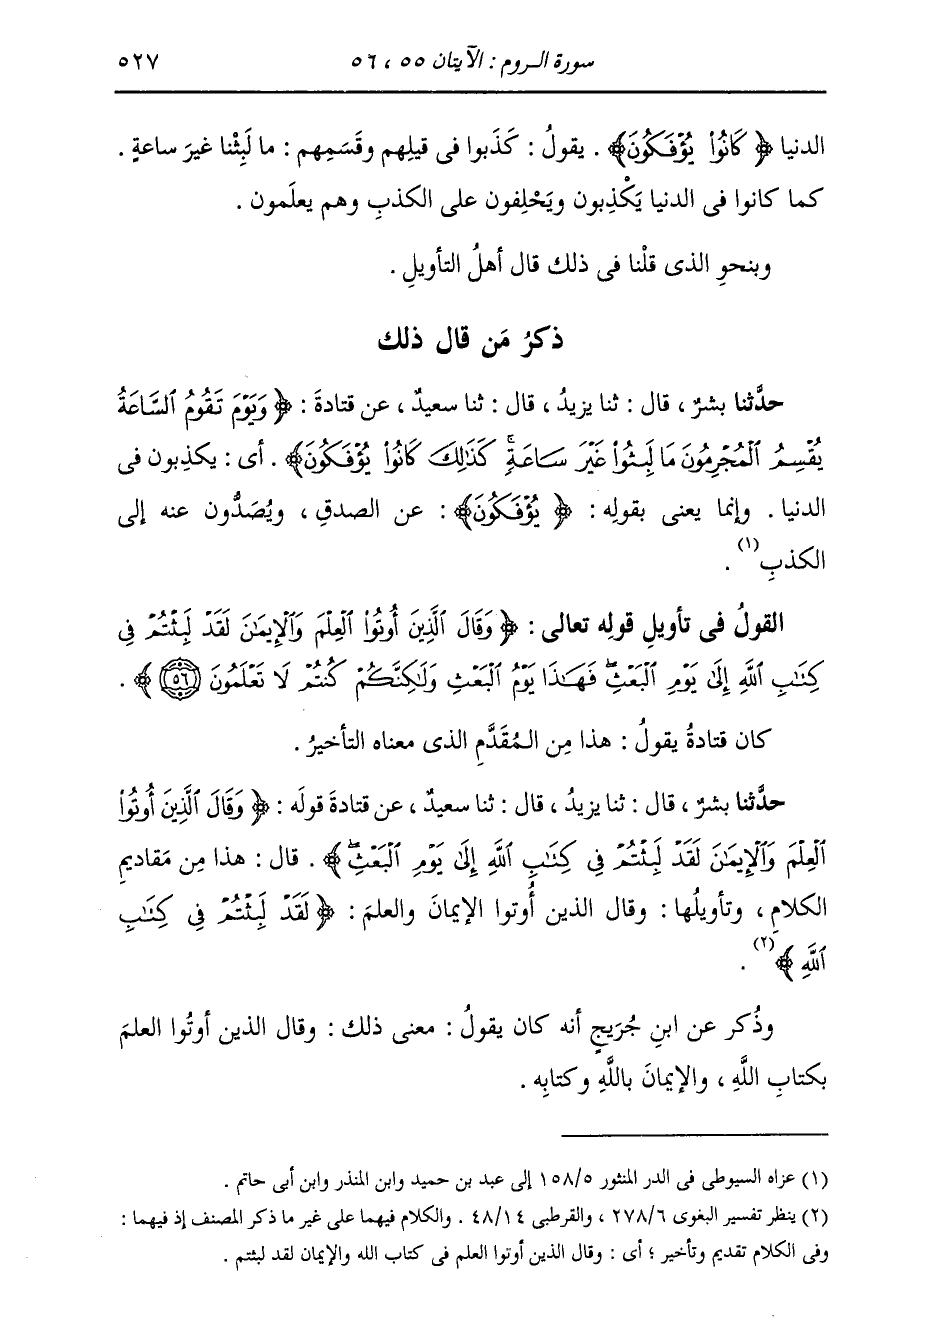 سورة الروم : الآيتان ٥٥ ، ٥٦ ٥٢٧
الدنيا ﴿ كَانُوا۟ يُؤْفَكُونَ﴾ . يقولُ : كَذَبوا فى قيلِهم وقَسَمِهم : ما لَبِثْنا غيرَ ساعةٍ .
كما كانوا فى الدنيا يَكْذِبون ويَحْلِفون على الكذبِ وهم يعلَمون .
وبنحوِ الذى قلْنا فى ذلك قال أهلُ التأويلِ .
ذكرُ مَن قال ذلك
حدَّثنا بشرٌ ، قال : ثنا يزيدُ ، قال : ثنا سعيدٌ ، عن قتادةَ : ﴿ وَيَوْمَ تَقُومُ ٱلسَّاعَةُ
يُقْسِمُ ٱلْمُجْرِمُونَ مَا لَبِثُوا۟ غَيْرَ سَاعَةٍۚ كَذَٰلِكَ كَانُوا۟ يُؤْفَكُونَ﴾ . أى : يكذِبون فى
الدنيا . وإنما يعنى بقولِه : ﴿ يُؤْفَكُونَ﴾ : عن الصدقِ ، ويُصَدُّون عنه إلى
الكذبِ(١) .
القولُ فى تأويلِ قولِه تعالى : ﴿ وَقَالَ ٱلَّذِينَ أُوتُوا۟ ٱلْعِلْمَ وَٱلْإِيمَٰنَ لَقَدْ لَبِثْتُمْ فِى
كِتَٰبِ ٱللَّهِ إِلَىٰ يَوْمِ ٱلْبَعْثِۖ فَهَٰذَا يَوْمُ ٱلْبَعْثِ وَلَٰكِنَّكُمْ كُنتُمْ لَا تَعْلَمُونَ ٥٦ ﴾ .
كان قتادةُ يقولُ : هذا مِن المُقَدَّمِ الذى معناه التأخيرُ .
حدَّثنا بشرٌ ، قال : ثنا يزيدُ ، قال : ثنا سعيدٌ ، عن قتادةَ قولَه : ﴿ وَقَالَ ٱلَّذِينَ أُوتُوا۟
ٱلْعِلْمَ وَٱلْإِيمَٰنَ لَقَدْ لَبِثْتُمْ فِى كِتَٰبِ ٱللَّهِ إِلَىٰ يَوْمِ ٱلْبَعْثِۖ﴾ . قال : هذا مِن مَقاديمِ
الكلامِ ، وتأويلُها : وقال الذين أُوتوا الإيمانَ والعلمَ : ﴿ لَقَدْ لَبِثْتُمْ فِى كِتَٰبِ
ٱللَّهِ ﴾(٢) .
وذُكر عن ابنِ جُرَيجٍ أنه كان يقولُ : معنى ذلك : وقال الذين أوتُوا العلمَ
بكتابِ اللَّهِ ، والإيمانَ باللَّهِ وكتابِه .
(١) عزاه السيوطى فى الدر المنثور ١٥٨/٥ إلى عبد بن حميد وابن المنذر وابن أبى حاتم .
(٢) ينظر تفسير البغوى ٢٧٨/٦ ، والقرطبى ٤٨/١٤ . والكلام فيهما على غير ما ذكر المصنف إذ فيهما :
وفى الكلام تقديم وتأخير ؛ أى : وقال الذين أوتوا العلم فى كتاب الله والإيمان لقد لبثتم .